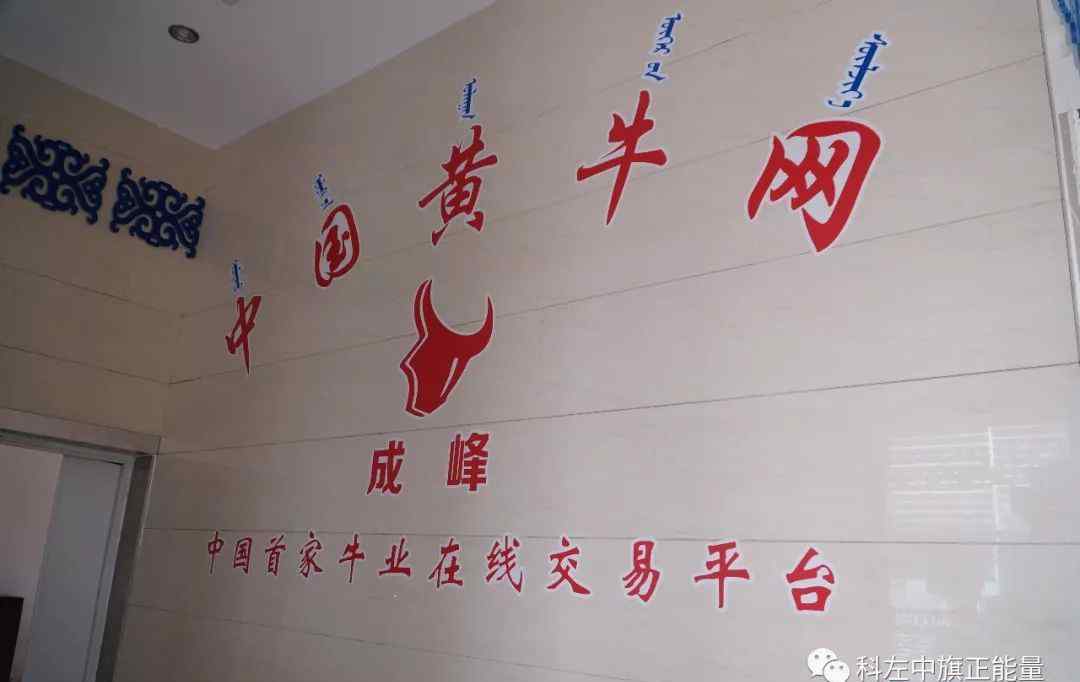 中国黄牛网
成峰
中国首家牛业在线交易平台
科左中旗正能量